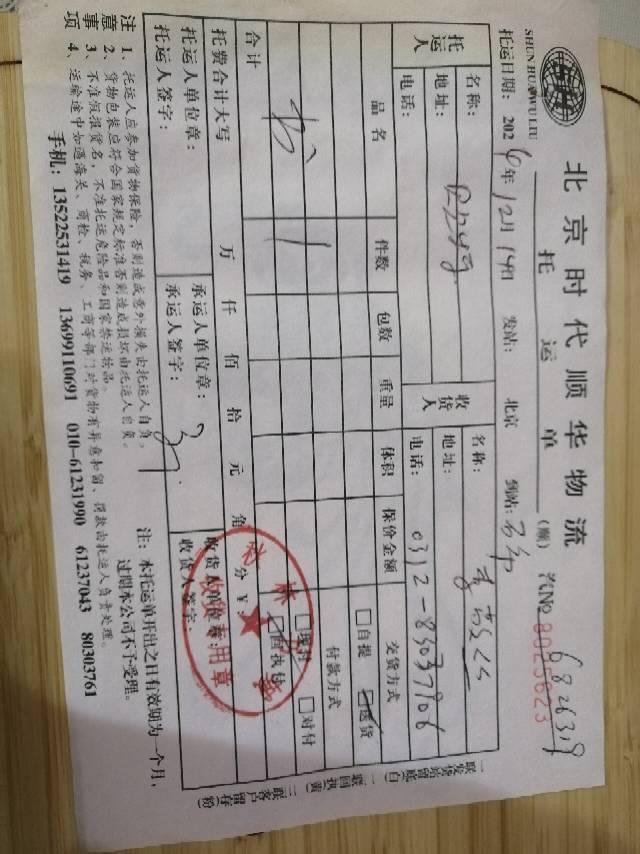 北京时代顺华物流
SHUN HUA WU LIU
托运单
(顺) 沟NO 8025623
托运日期: 202 年12月19日 发站: 北京 到站:
托运人 名称: 收货人 名称:
地址: 地址:
电话: 电话: 0312-83037806
品名 件数 包数 重量 体积 保价金额 交货方式
1 □自提 □送货
付款方式
□现付 □对付
合计 1 □回执付
托费合计大写 万 仟 佰 拾 元 角 分 ¥:
托运人单位章: 承运人单位章: 收货人单位章:
托运人签字: 承运人签字: 收货人签字:
注意事项
1、托运人应参加货物保险,否则造成意外损失由托运人自负。
2、货物包装应符合国家规定标准否则造成损坏由托运人自负。
3、不准假报货名,不准托运危险品和国家禁运物品。
4、运输途中如遇海关、商检、税务、工商等部门对货物有异意扣留、罚款由托运人负责处理。
注: 本托运单开出之日有效期为一个月,
过期本公司不予受理。
手机: 13522531419 13699110691 010-61231990 61237043 80303761
一联发货站留底(白) 二联回执(黄) 三联客户留存(粉)